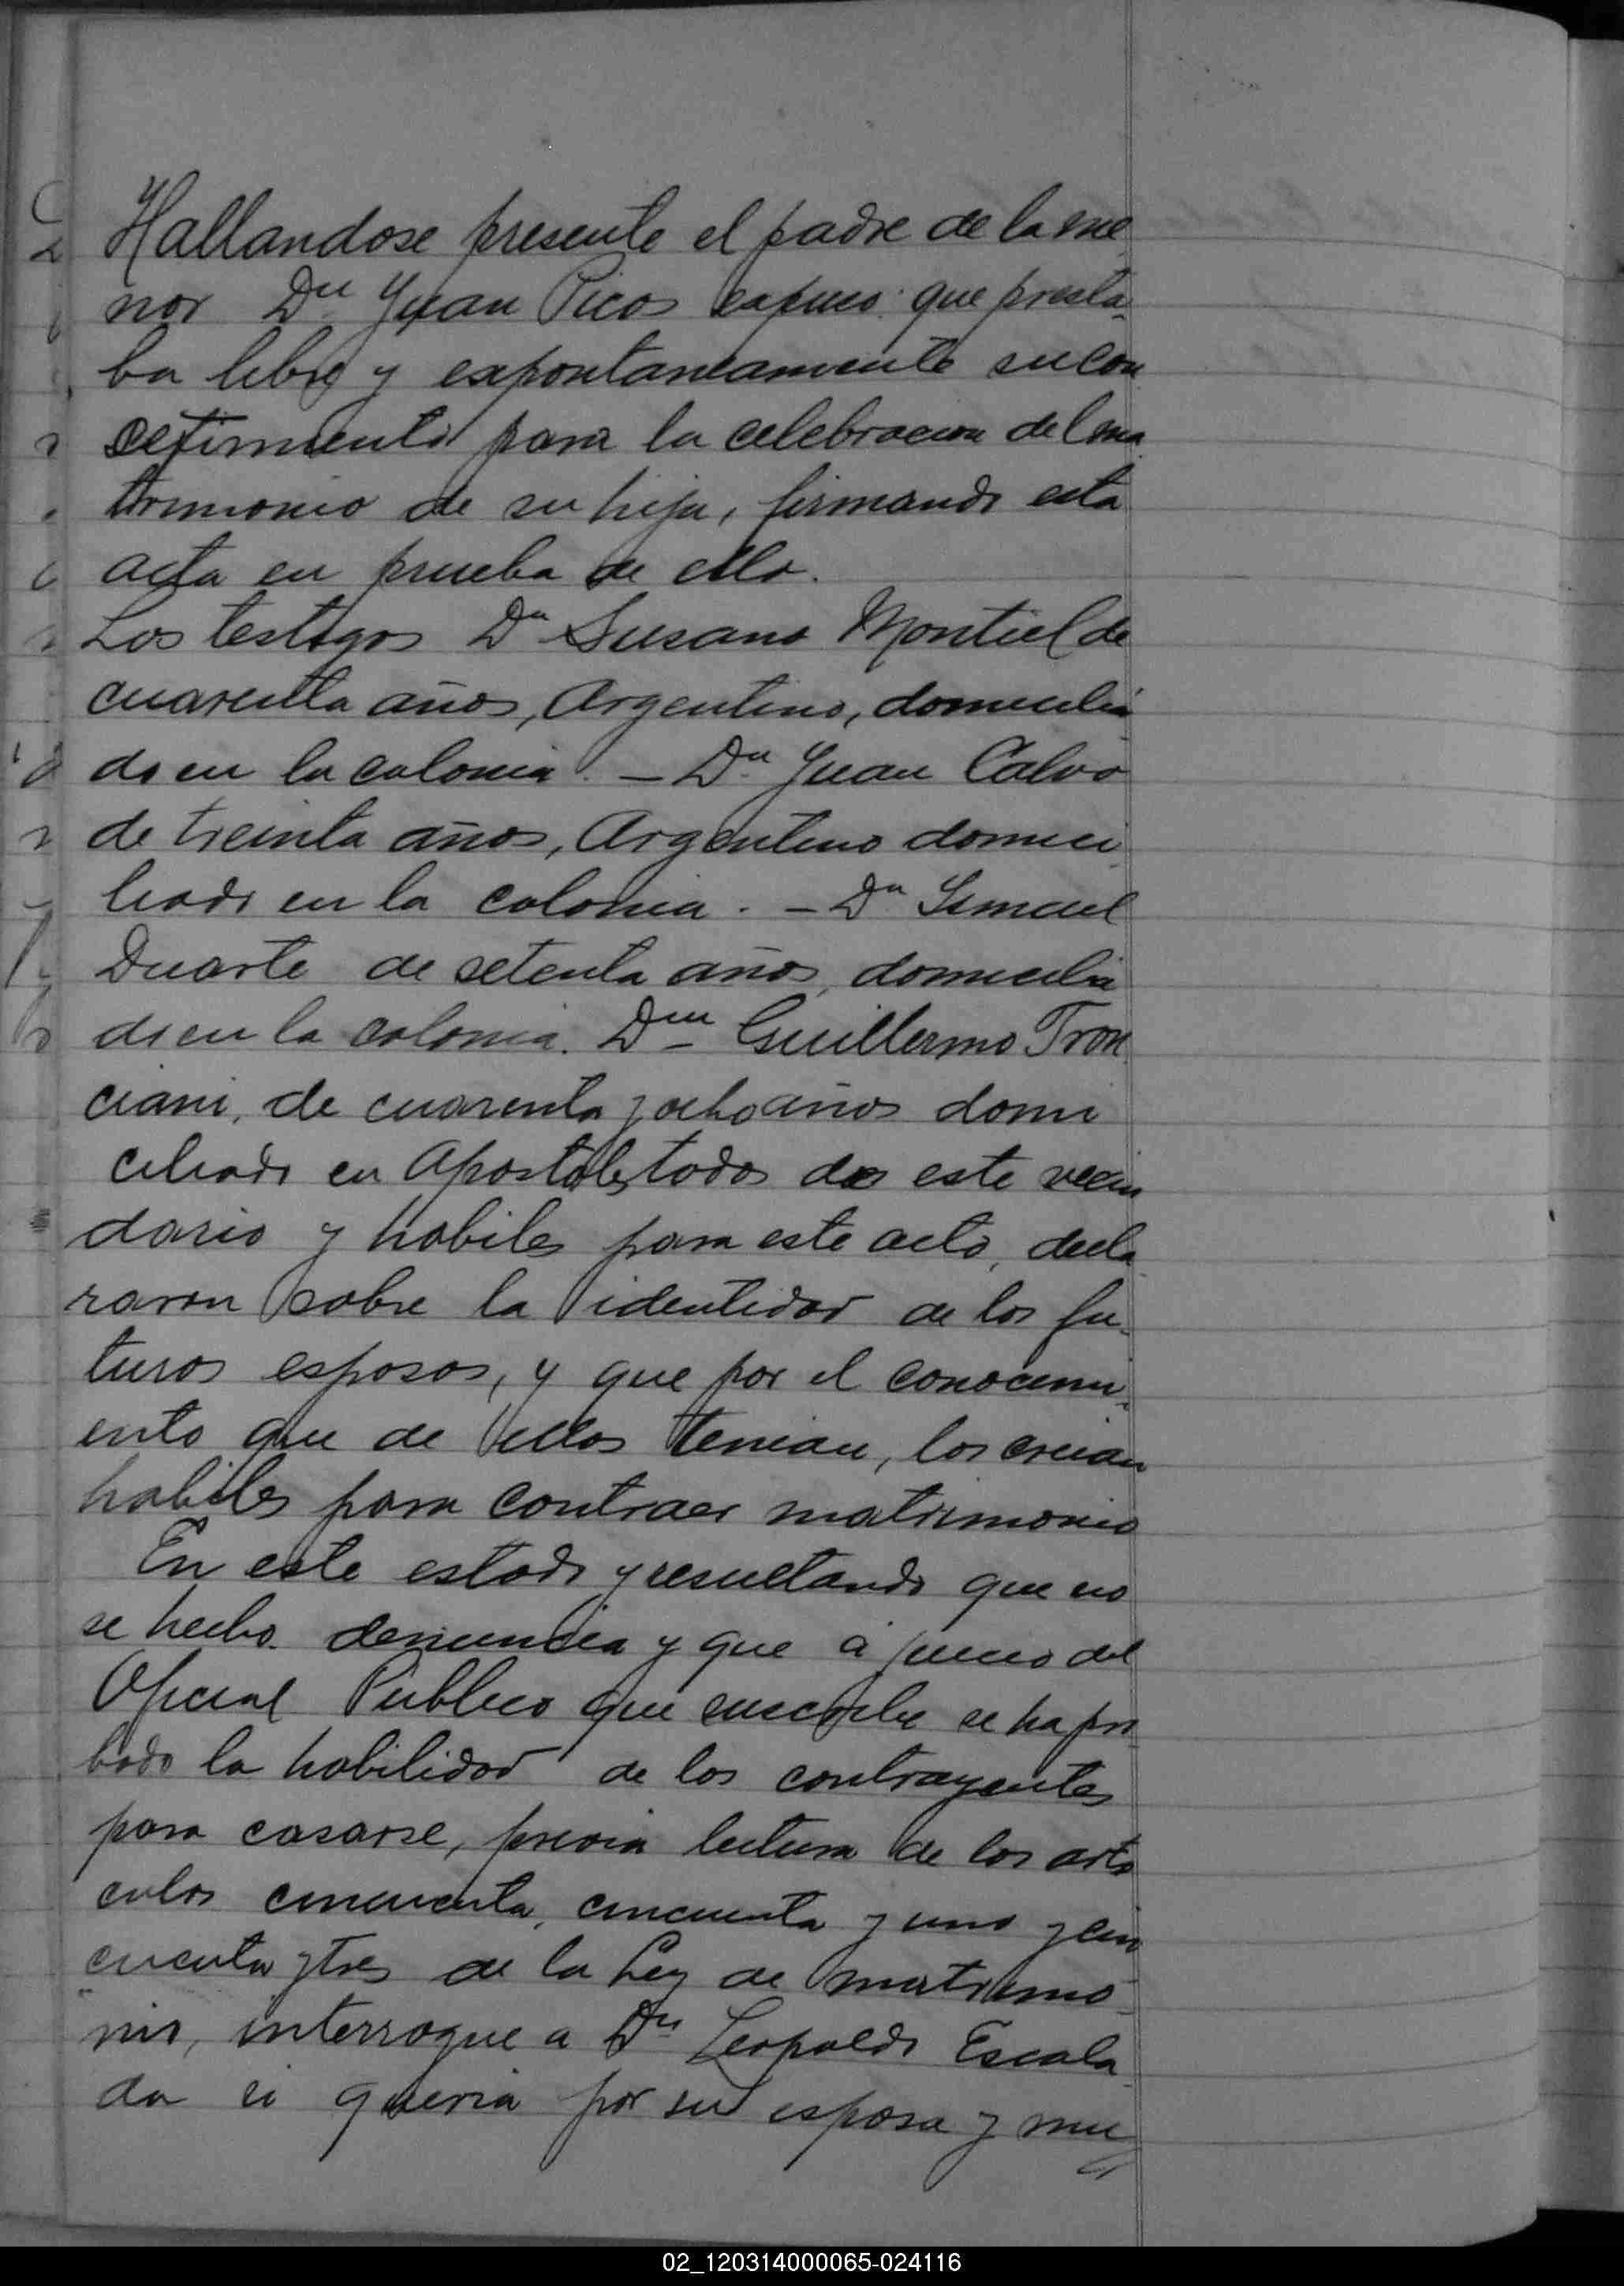 Hallandose presente el padre de la me
nor Dn Juan Picos expuso: que presta-
ba libre y expontaneamente su con
setimiento para la celebracion del ma
trimonio de su hija, firmando esta
acta en prueba de ello.
Los testigos Dn Susano Montiel de
cuarenta años, Argentino, domicilia-
do en la colonia. — Dn Juan Calvo
de treinta años, Argentino domici
liado en la colonia. — Dn Ismael
Duarte de setenta años, domicilia
do en la colonia. Dn Guillermo Tron
ciani, de cuarenta y ocho años domi
ciliado en Apostoles, todos de este vecin
dario y habiles para este acto, decla
raron sobre la identidad de los fu-
turos esposos, y que por el conocimi-
ento que de ellos tenian, los creian
habiles para contraer matrimonio
En este estado y resultando que no
se hecho denuncia y que á juicio del
Oficial Publico que suscribe se ha pro
bado la habilidad de los contrayentes
para casarse, previa lectura de los arti
culos cincuenta, cincuenta y uno y cin
cuenta y tres de la Ley de matrimo-
nio, interrogue a Dn Leopoldo Escala
da si queria por su esposa y mu
02_120314000065-024116